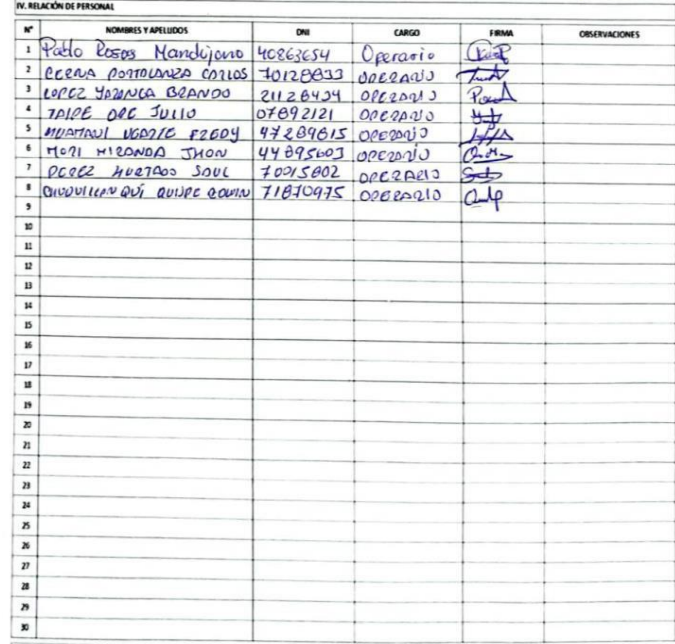 IV. RELACIÓN DE PERSONAL
N° NOMBRES Y APELLIDOS DNI CARGO FIRMA OBSERVACIONES
1 Pablo Rosas Mandujano 40863654 Operario
2 CERNA PORTOLANZA CARLOS 70128833 OPERARIO
3 LOPEZ YARANGA BRANDO 21128434 OPERARIO
4 TAIPE ORE JULIO 07892121 OPERARIO
5 HUAMANI UGARTE FREDY 47289615 OPERARIO
6 MORI MIRANDA JHON 44895603 OPERARIO
7 PEREZ HURTADO SAUL 70015802 OPERARIO
8 QUISPE 71870975 OPERARIO
9
10
11
12
13
14
15
16
17
18
19
20
21
22
23
24
25
26
27
28
29
30